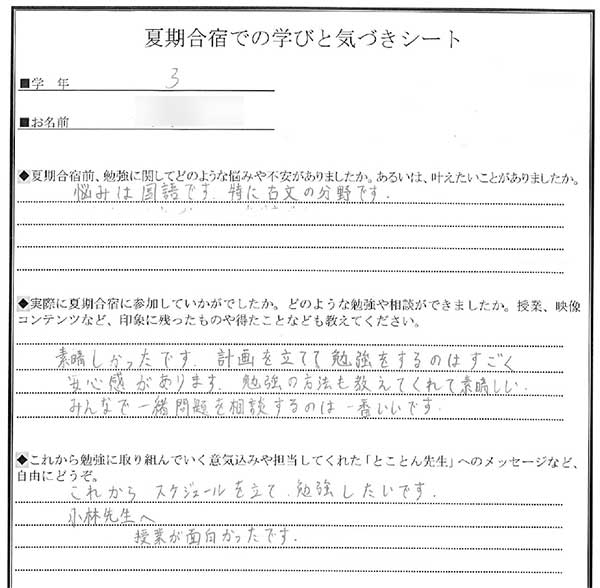 夏期合宿での学びと気づきシート
■学 年 3
■お名前
◆夏期合宿前、勉強に関してどのような悩みや不安がありましたか。あるいは、叶えたいことがありましたか。
悩みは国語です。特に古文の分野です。
◆実際に夏期合宿に参加していかがでしたか。どのような勉強や相談ができましたか。授業、映像
コンテンツなど、印象に残ったものや得たことなども教えてください。
素晴しかったです。計画を立てて勉強をするのはすごく
安心感があります。勉強の方法も教えてくれて素晴しい.
みんなで一緒問題を相談するのは一番いいです.
◆これから勉強に取り組んでいく意気込みや担当してくれた「とことん先生」へのメッセージなど、
自由にどうぞ。
これから スケジュールを立て、勉強したいです.
小林先生へ
授業が面白かったです.